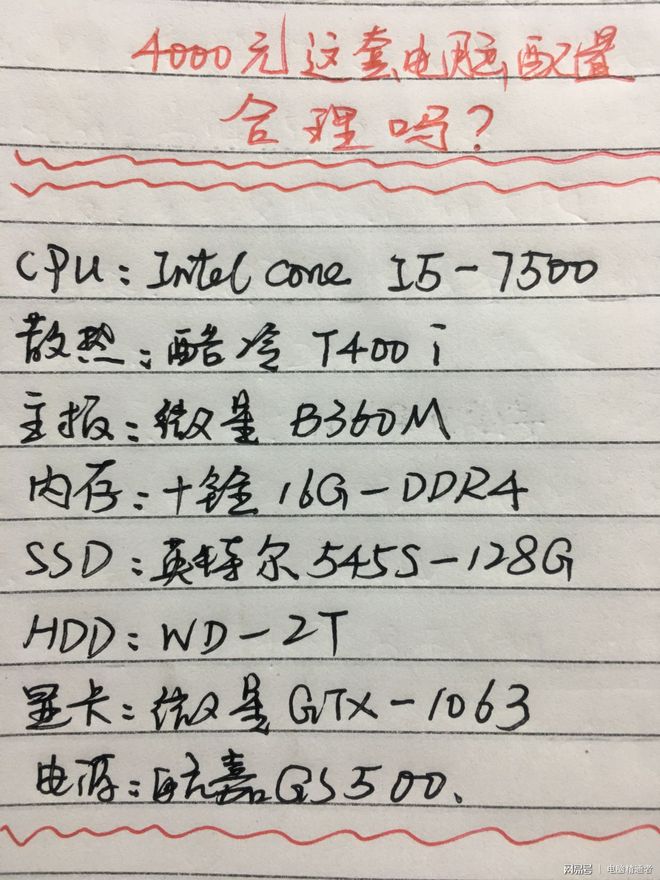 4000元这套电脑配置
合理吗?
CPU: Intel core I5-7500
散热: 酷冷 T400i
主板: 微星 B360M
内存: 十铨 16G-DDR4
SSD: 英特尔 545S-128G
HDD: WD-2T
显卡: 微星 GTX-1063
电源: 航嘉 GS500.
网易号 | 电脑精通者